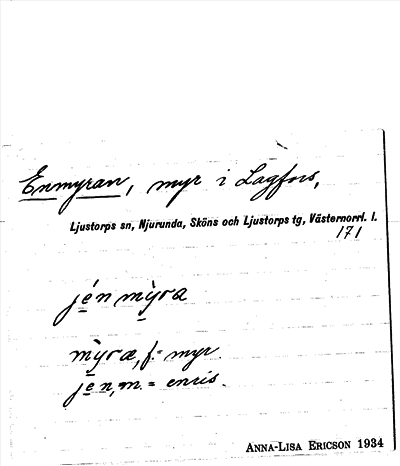 Enmyran, myr i Lagfors,
Ljustorps sn, Njurunda, Sköns och Ljustorps tg, Västernorrl. l.
171
jén mỳra
mỳra, f. = myr
jen, m. = enris.
ANNA-LISA ERICSON 1934